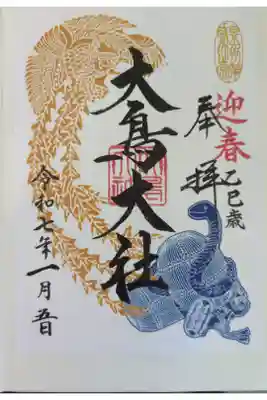 迎春
乙巳歳
奉拝
大鳥大社
令和七年一月五日